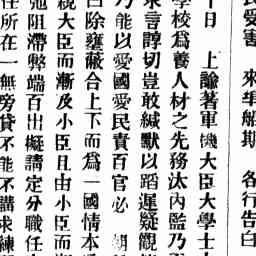 民受害　來年船期　各行告白
十日　上諭著軍機大臣大學士
學校爲養人材之先務汰內監乃
求言諄切豈敢緘默以蹈遲疑觀
乃能以愛國愛民責百官必
白除壅蔽合上下而爲一國情本
親大臣而漸及小臣且由小臣而
弛阻滯弊端百出擬請定分職任
任所在一無旁貸不能不講求練